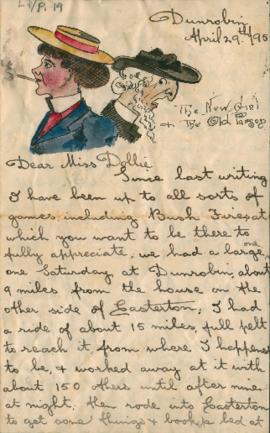 L1/P. 19
Dunrobin
April 29th/95
The New Girl
& The Old Parson
Dear Miss Dollie
Since last writing
I have been up to all sorts of
games, including Bush Fires, at
which you want to be there to
fully appreciate, we had a large
one
one Saturday at Dunrobin, about
9 miles from the house on the
other side of Easterton, I had
a ride of about 15 miles, full pelt
to reach it from where I happened
to be, & worked away at it with
about 150 others until after nine
at night, then rode into Easterton
to get some things & book a bed at